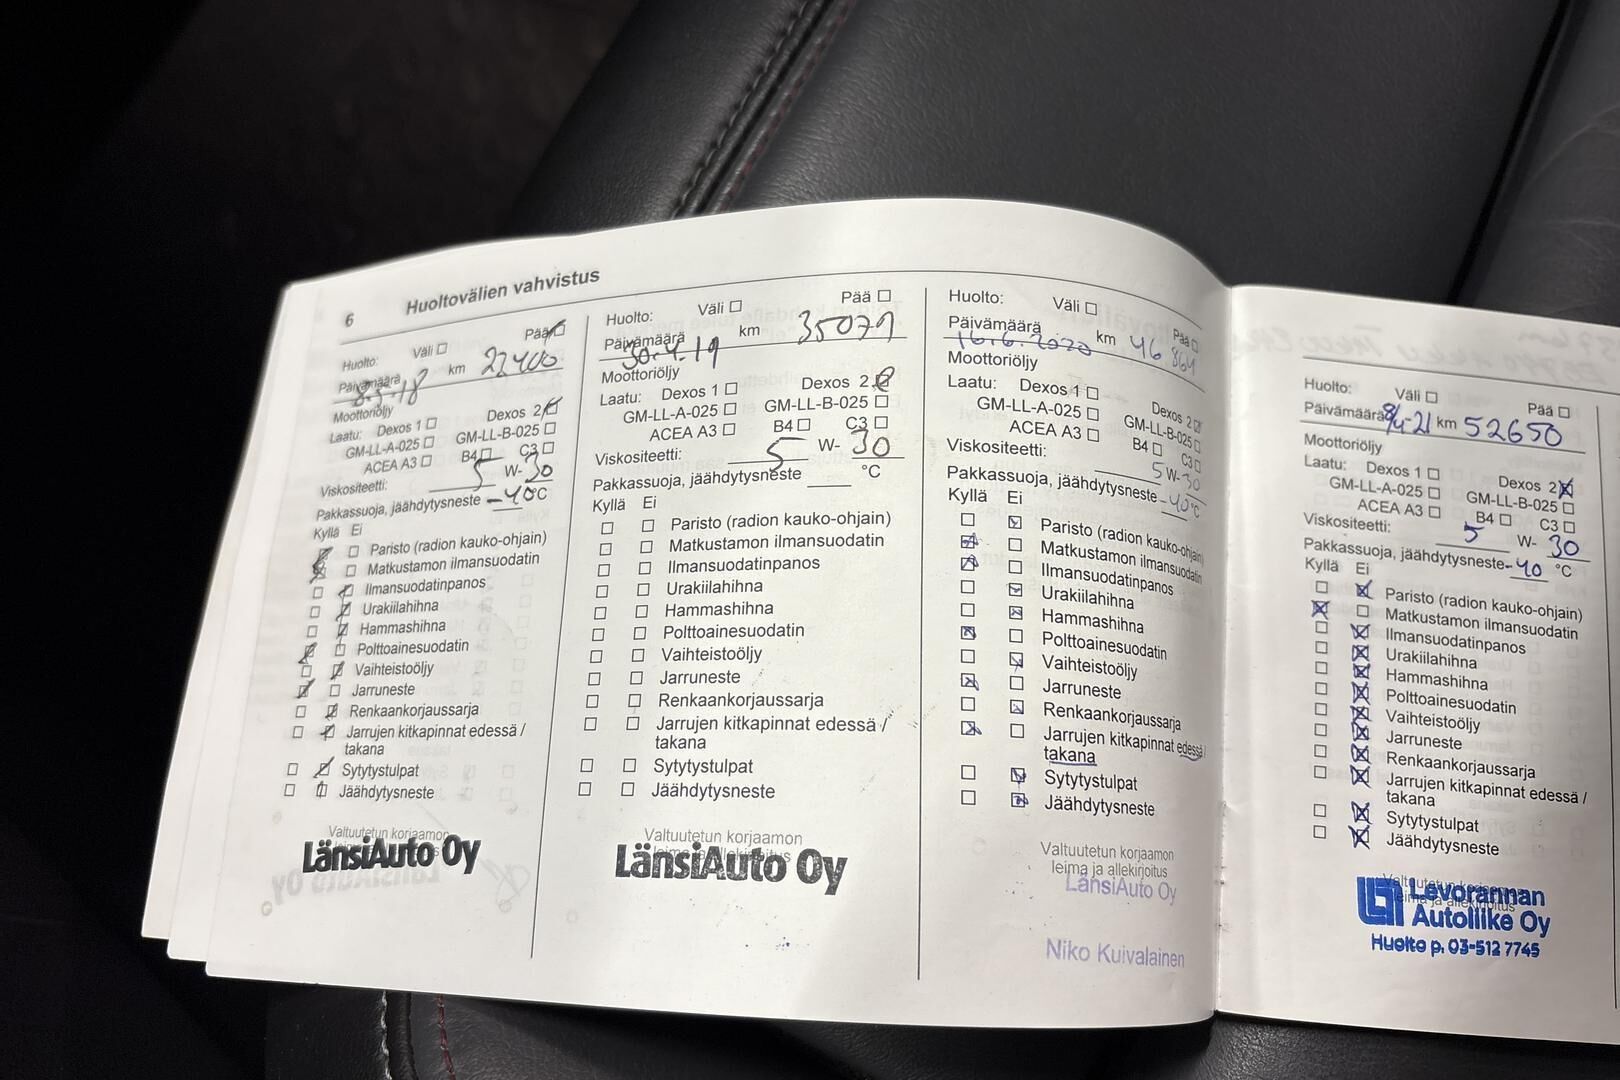 6 Huoltovälien vahvistus
Huolto: Väli Pää
Päivämäärä km 22400
8.5.18
Moottoriöljy
Laatu: Dexos 1 Dexos 2
GM-LL-A-025 GM-LL-B-025
ACEA A3 B4 C3
Viskositeetti: 5 W- 30
Pakkassuoja, jäähdytysneste -40 °C
Kyllä Ei
Paristo (radion kauko-ohjain)
Matkustamon ilmansuodatin
Ilmansuodatinpanos
Urakiilahihna
Hammashihna
Polttoainesuodatin
Vaihteistoöljy
Jarruneste
Renkaankorjaussarja
Jarrujen kitkapinnat edessä /
takana
Sytytystulpat
Jäähdytysneste
Valtuutetun korjaamon
LänsiAuto Oy
Huolto: Väli Pää
Päivämäärä km 35079
30.4.19
Moottoriöljy
Laatu: Dexos 1 Dexos 2
GM-LL-A-025 GM-LL-B-025
ACEA A3 B4 C3
Viskositeetti: 5 W- 30
Pakkassuoja, jäähdytysneste °C
Kyllä Ei
Paristo (radion kauko-ohjain)
Matkustamon ilmansuodatin
Ilmansuodatinpanos
Urakiilahihna
Hammashihna
Polttoainesuodatin
Vaihteistoöljy
Jarruneste
Renkaankorjaussarja
Jarrujen kitkapinnat edessä /
takana
Sytytystulpat
Jäähdytysneste
Valtuutetun korjaamon
leima ja allekirjoitus
LänsiAuto Oy
Huolto: Väli Pää
Päivämäärä km 46 864
16.6.2020
Moottoriöljy
Laatu: Dexos 1 Dexos 2
GM-LL-A-025 GM-LL-B-025
ACEA A3 B4 C3
Viskositeetti: 5 W-30
Pakkassuoja, jäähdytysneste -40 °C
Kyllä Ei
Paristo (radion kauko-ohjain)
Matkustamon ilmansuodatin
Ilmansuodatinpanos
Urakiilahihna
Hammashihna
Polttoainesuodatin
Vaihteistoöljy
Jarruneste
Renkaankorjaussarja
Jarrujen kitkapinnat edessä /
takana
Sytytystulpat
Jäähdytysneste
Valtuutetun korjaamon
leima ja allekirjoitus
LänsiAuto Oy
Niko Kuivalainen
Huolto: Väli Pää
Päivämäärä 8/4-21 km 52650
Moottoriöljy
Laatu: Dexos 1 Dexos 2
GM-LL-A-025 GM-LL-B-025
ACEA A3 B4 C3
Viskositeetti: 5 W- 30
Pakkassuoja, jäähdytysneste -40 °C
Kyllä Ei
Paristo (radion kauko-ohjain)
Matkustamon ilmansuodatin
Ilmansuodatinpanos
Urakiilahihna
Hammashihna
Polttoainesuodatin
Vaihteistoöljy
Jarruneste
Renkaankorjaussarja
Jarrujen kitkapinnat edessä /
takana
Sytytystulpat
Jäähdytysneste
Valtuutetun korjaamon
leima ja allekirjoitus
Levorannan
Autoliike Oy
Huolto p. 03-512 7745